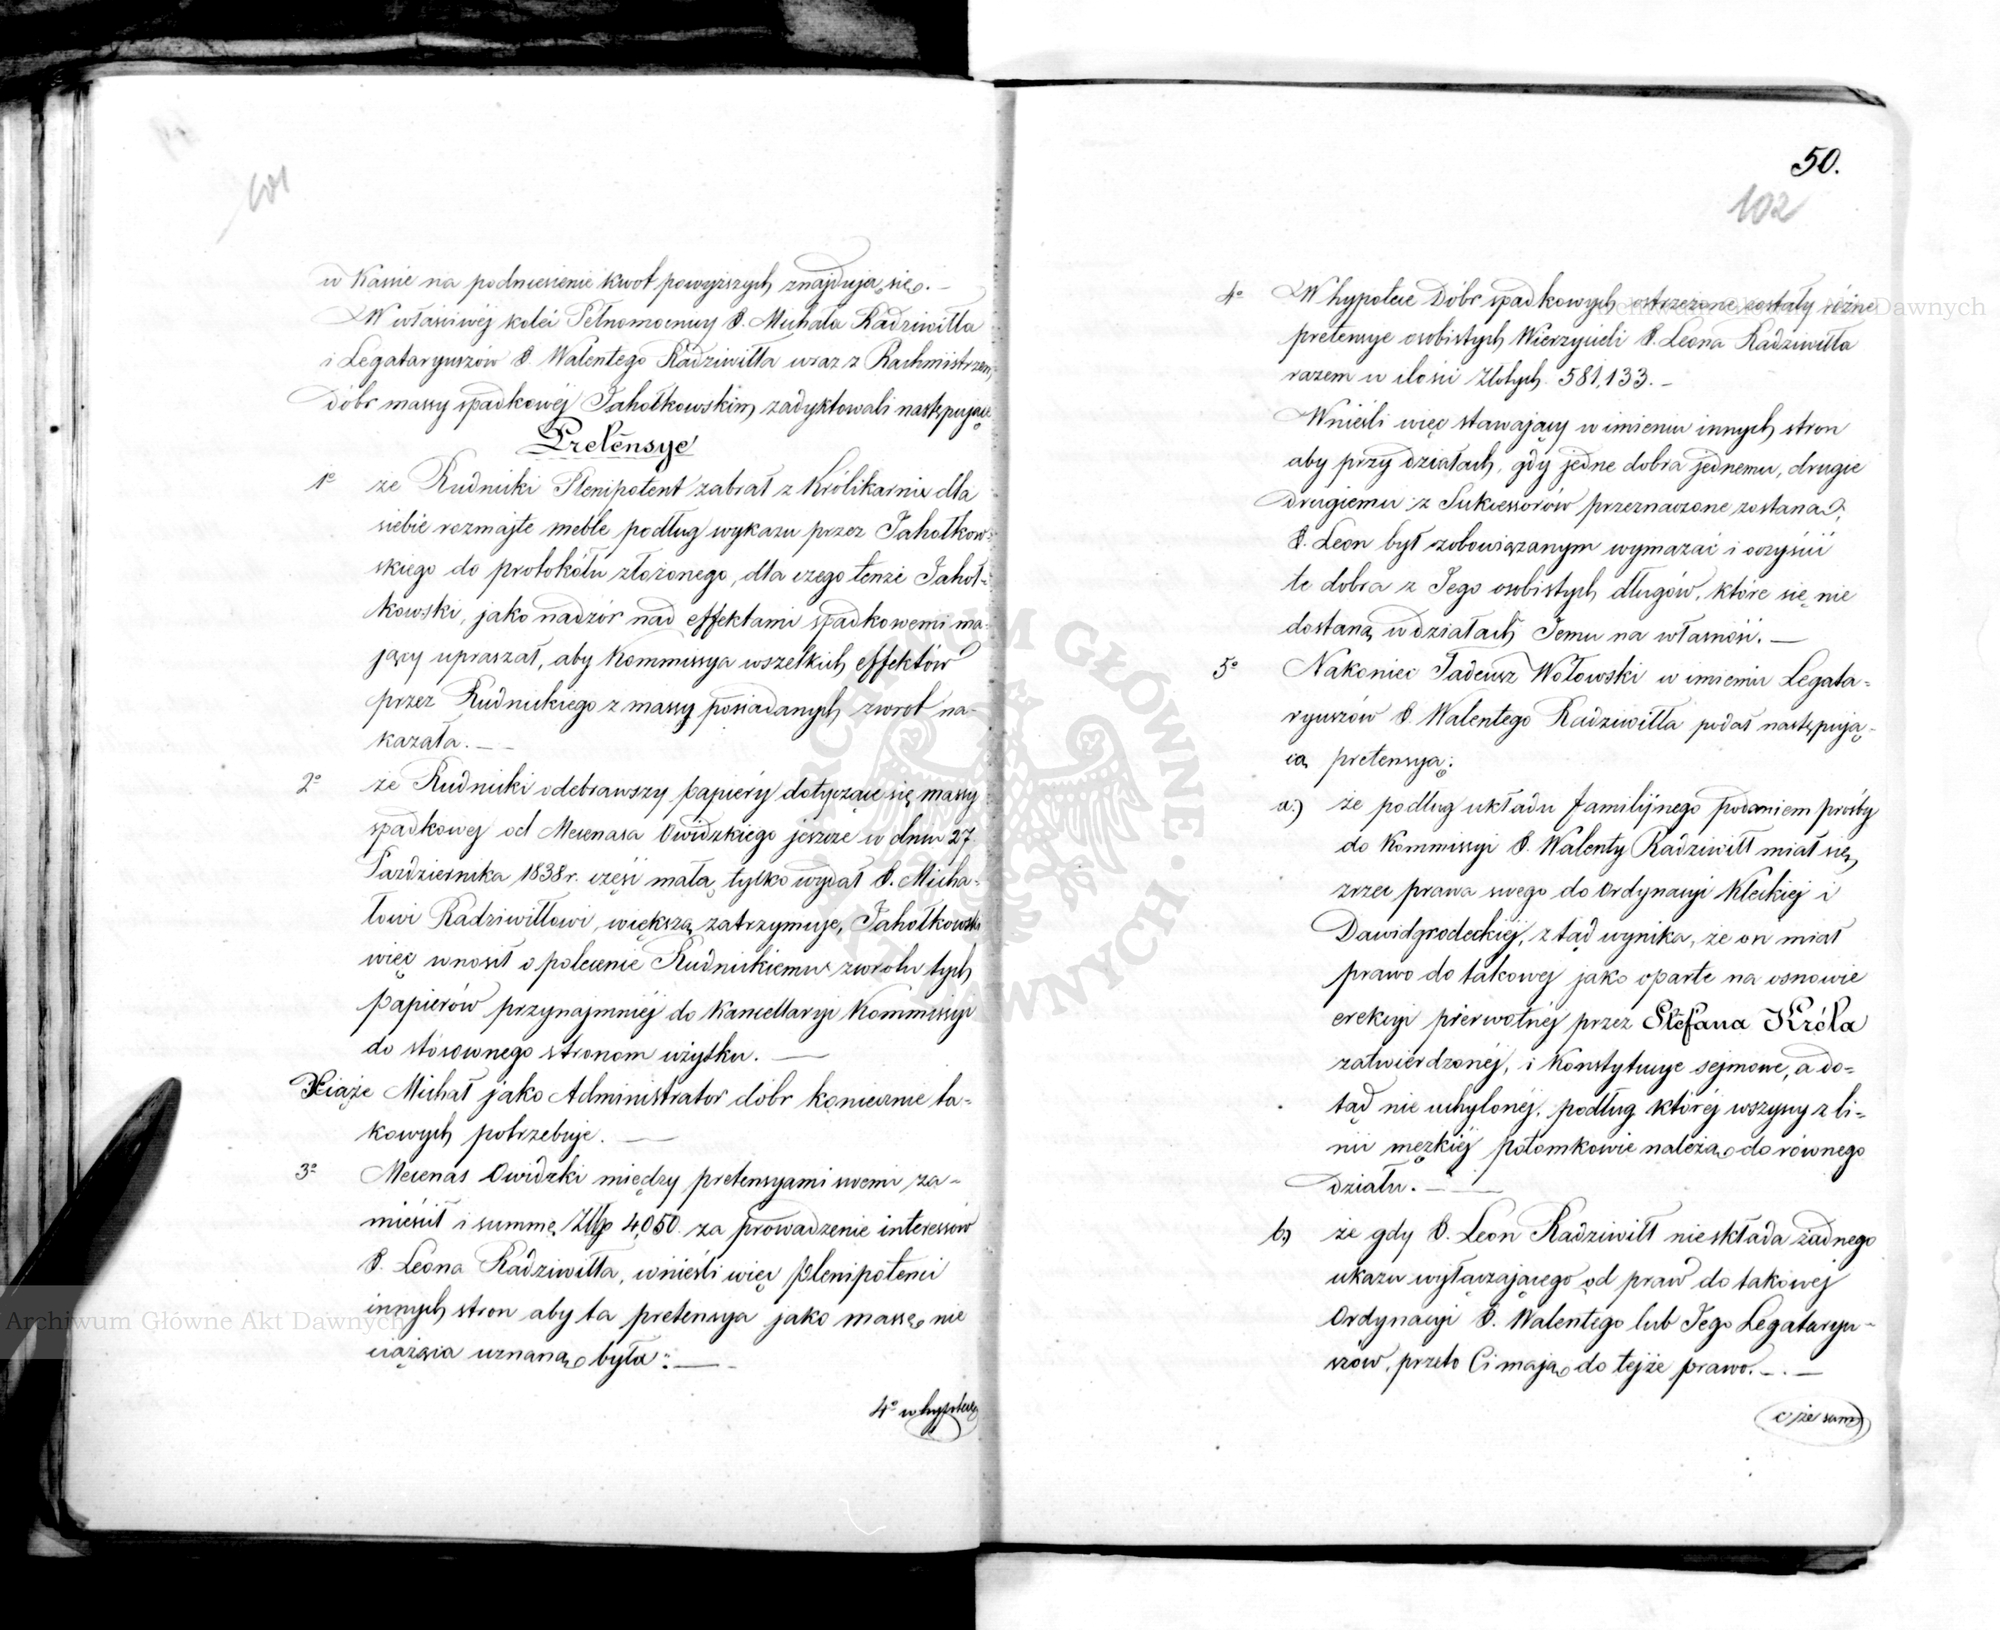 101
w Kassie na podniesienie kwot powyższych znajdują się. —
W właściwéj kolei Pełnomocnicy X. Michała Radziwiłła
i Legataryuszów X. Walentego Radziwiłła wraz z Rachmistrzem
dóbr massy spadkowéj Jahołkowskim zadyktowali następujące
Pretensye
1o że Rudnicki Plenipotent zabrał z Królikarni dla
siebie rozmajte meble podług wykazu przez Jahołkow-
skiego do protokółu złożonego, dla czego tenże Jahoł-
kowski, jako nadzór nad effektami spadkowemi ma-
jący upraszał, aby Kommissya wszelkich effektów
przez Rudnickiego z massy posiadanych zwrot na-
kazała. — —
2o że Rudnicki odebrawszy papiéry dotyczące się massy
spadkowej od Mecenasa Owidzkiego jeszcze w dniu 27
Pazdziernika 1838 r. część małą tylko wydał X. Micha-
łowi Radziwiłłowi, większą zatrzymuje, Jahołkowski
więc wnosił o polecenie Rudnickiemu zwrotu tych
papierów przynajmniéj do Kancellaryi Kommissyi
do stósownego stronom użytku. —
Xiąże Michał jako Administrator dóbr koniecznie ta-
kowych potrzebuje. —
3o Mecenas Owidzki między pretensyami swemi za-
mieścił i summę Złp 4,050. za prowadzenie interessów
X. Leona Radziwiłła, wnieśli więc Plenipotenci
innych stron aby ta pretensya jako massę nie
ciążąca uznaną była. — -
4o w hypotece
50.
102
4o W hypotece Dóbr spadkowych ostrzeżone zostały różne
pretensye osobistych Wierzycieli X. Leona Radziwiłła
razem w ilości Złotych. 581,133. —
Wnieśli więc stawający w imieniu innych stron
aby przy działach, gdy jedne dobra jednemu, drugie
drugiemu z Sukcessorów przeznaczone zostaną,
X. Leon był zobowiązanym wymazać i oczyścić
te dobra z Jego osobistych długów, które się nie
dostaną w działach Jemu na własność. —
5o Nakoniec Tadeusz Wołowski w imieniu Legata-
ryuszów X. Walentego Radziwiłła podał następują-
cą pretensyą:
a.) że podług układu familijnego podaniem prośby
do Kommissyi X. Walenty Radziwiłł miał się
zrzec prawa swego do Ordynacyi Kleckiej i
Dawidgrodeckiéj, ztąd wynika, że on miał
prawo do takowej jako oparte na osnowie
erekcyi pierwotnéj przez Stefana Króla
zatwierdzonéj, i Konstytucye sejmowe, a do-
tąd nie uchylonéj, podług któréj wszyscy z li-
nii męzkiéj potomkowie należą do równego
działu. — —
b.) że gdy X. Leon Radziwiłł nie składa żadnego
ukazu wyłączającego od praw do takowéj
Ordynacyi X. Walentego lub Jego Legataryu-
szów, przeto Ci mają do tejże prawo. — . —
c/ że sam
Archiwum Główne Akt Dawnych
Archiwum Główne Akt Dawnych
ARCHIWUM GŁÓWNE AKT DAWNYCH